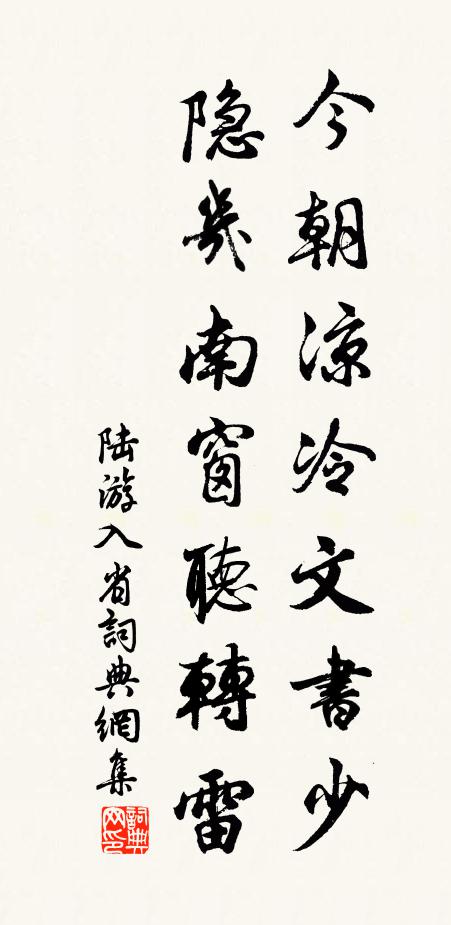 今朝凉冷文書少
隐幾南窗聽轉雷
陆游入省詞典網集
詞典网印